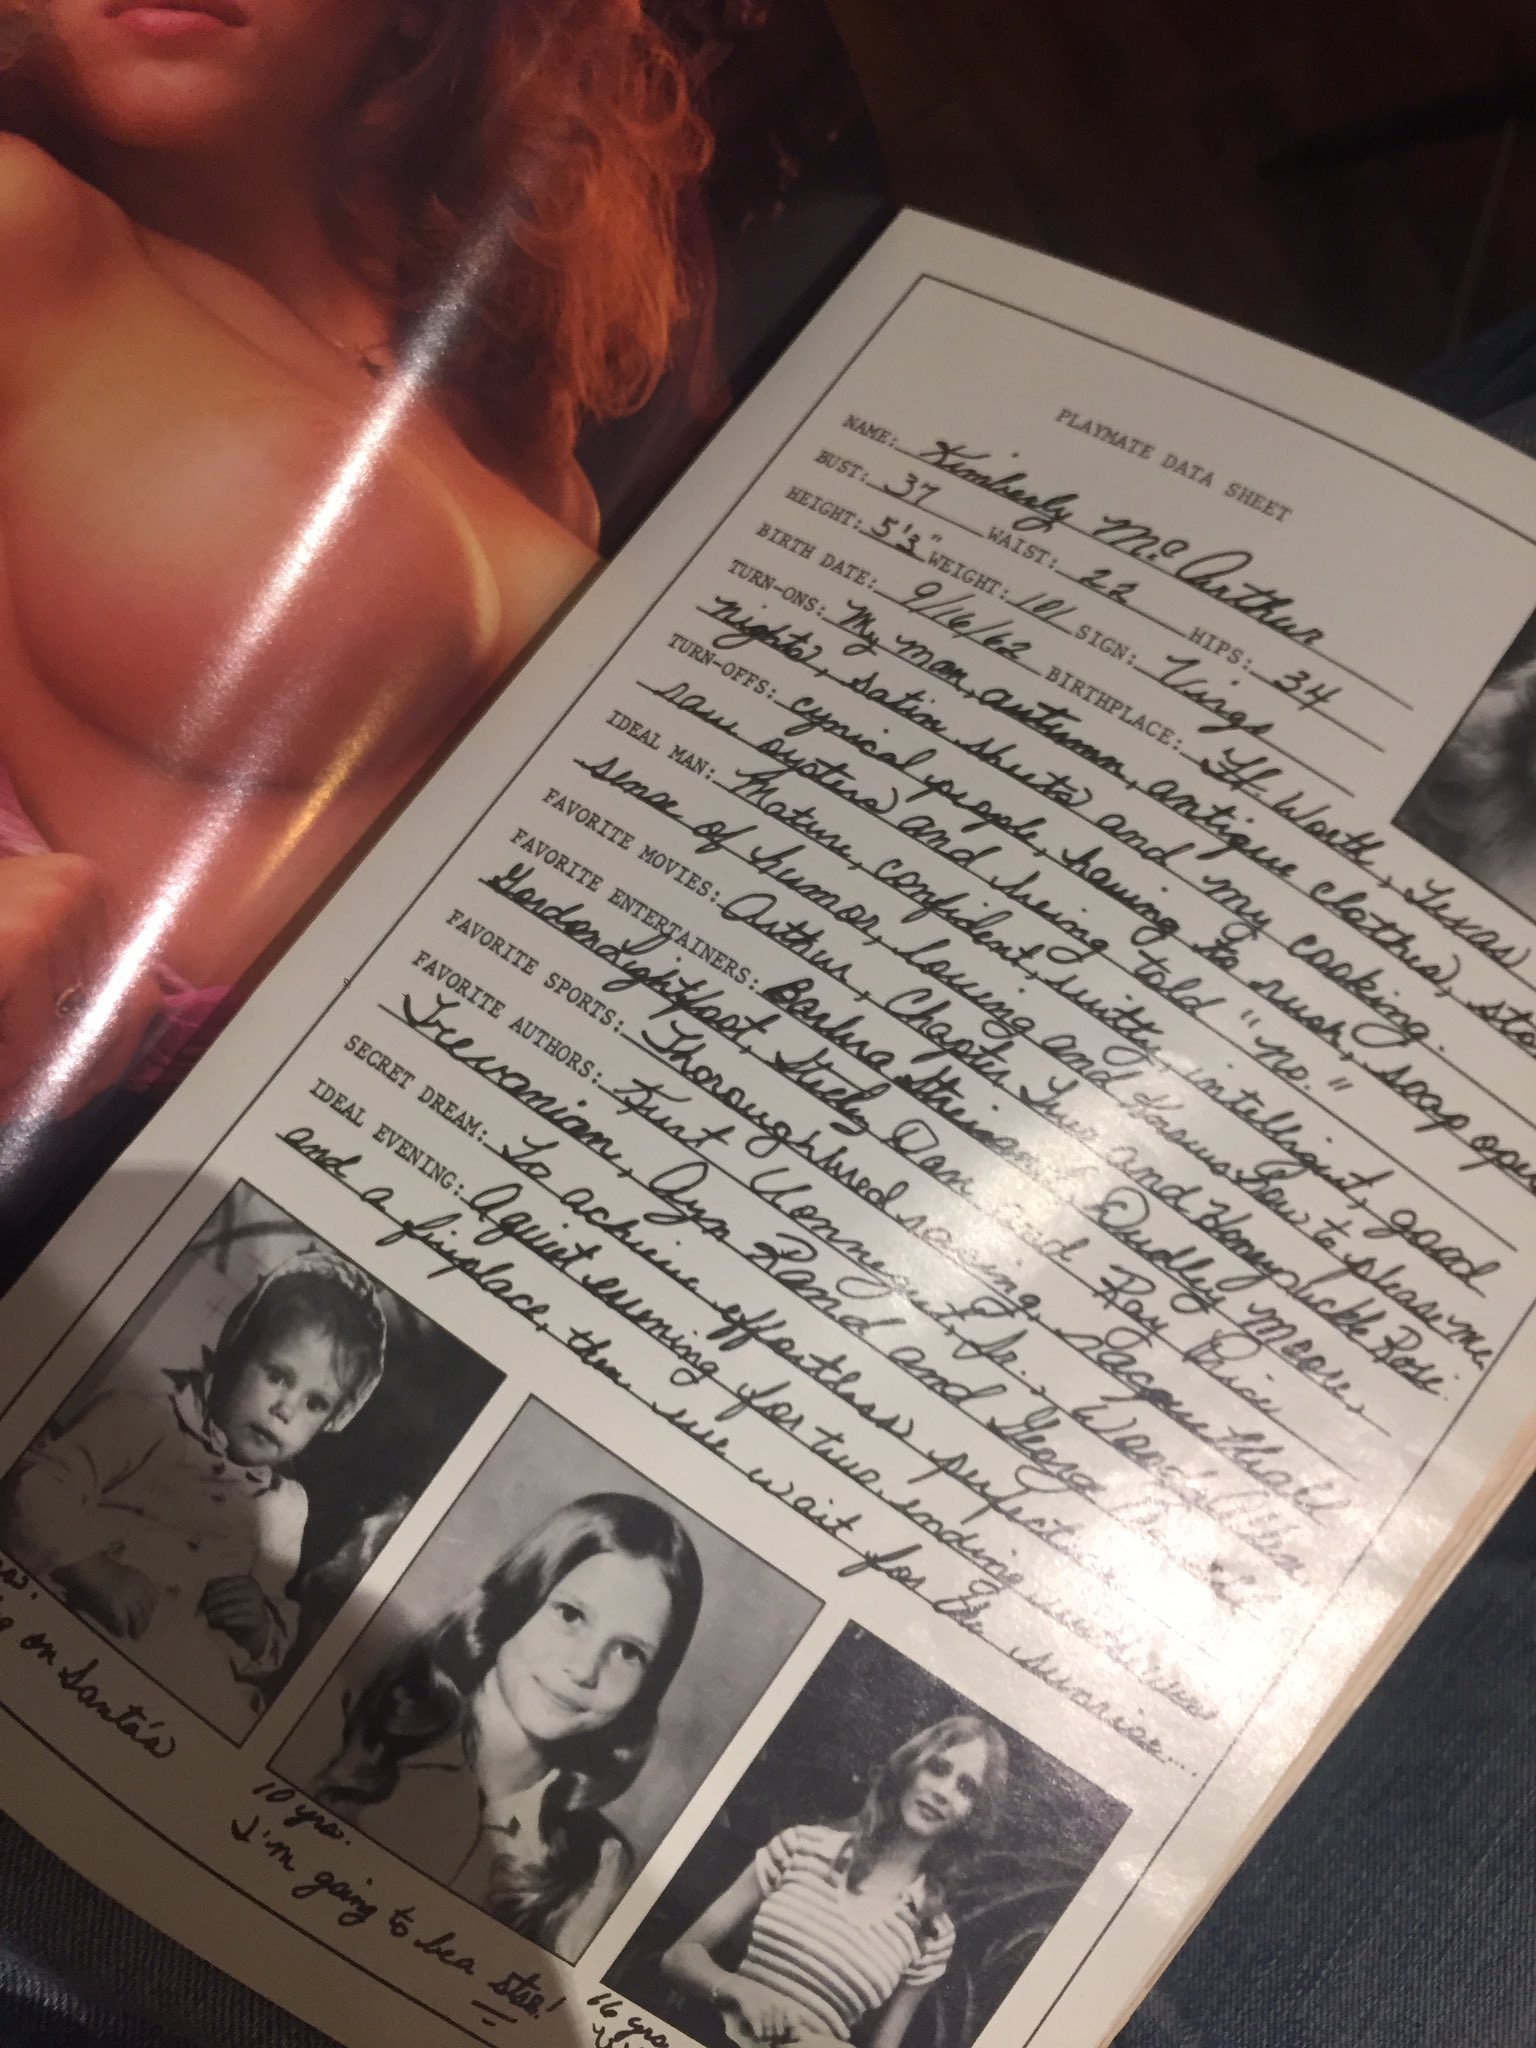 PLAYMATE DATA SHEET
NAME: Kimberly McArthur
BUST: 37 WAIST: 22 HIPS: 34
HEIGHT: 5'3" WEIGHT: 111 SIGN: Virgo
BIRTH DATE: 9/16/62 BIRTHPLACE: Ft. Worth, Texas
TURN-ONS: My man, autumn, antique clothes,
nights, satin sheets and my cooking.
TURN-OFFS: cynical people, having to rush, soap
raw oysters and being told "no."
IDEAL MAN: Mature, confident, witty, intelligent, good
sense of humor, loving and knows how to please me.
FAVORITE MOVIES: Arthur, Chapter Two and Honeysuckle Rose.
FAVORITE ENTERTAINERS: Barbra Streisand, Dudley Moore,
Gordon Lightfoot, Steely Dan and Ray Price
FAVORITE SPORTS: Thoroughbred racing,
FAVORITE AUTHORS: Kurt Vonnegut, Jr., Woody Allen,
Trevanian, Ayn Rand and George
SECRET DREAM: To achieve effortless perfection
IDEAL EVENING: A quiet evening for two, ending with
and a fireplace, then we wait for the sunrise....
on Santa's
10 yrs.
I'm going to be a star!
16 yrs.